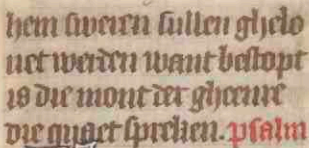 hem sweren sullen ghelo
uet werden want bestopt
is die mont der gheenre
die quaet spreken. psalm